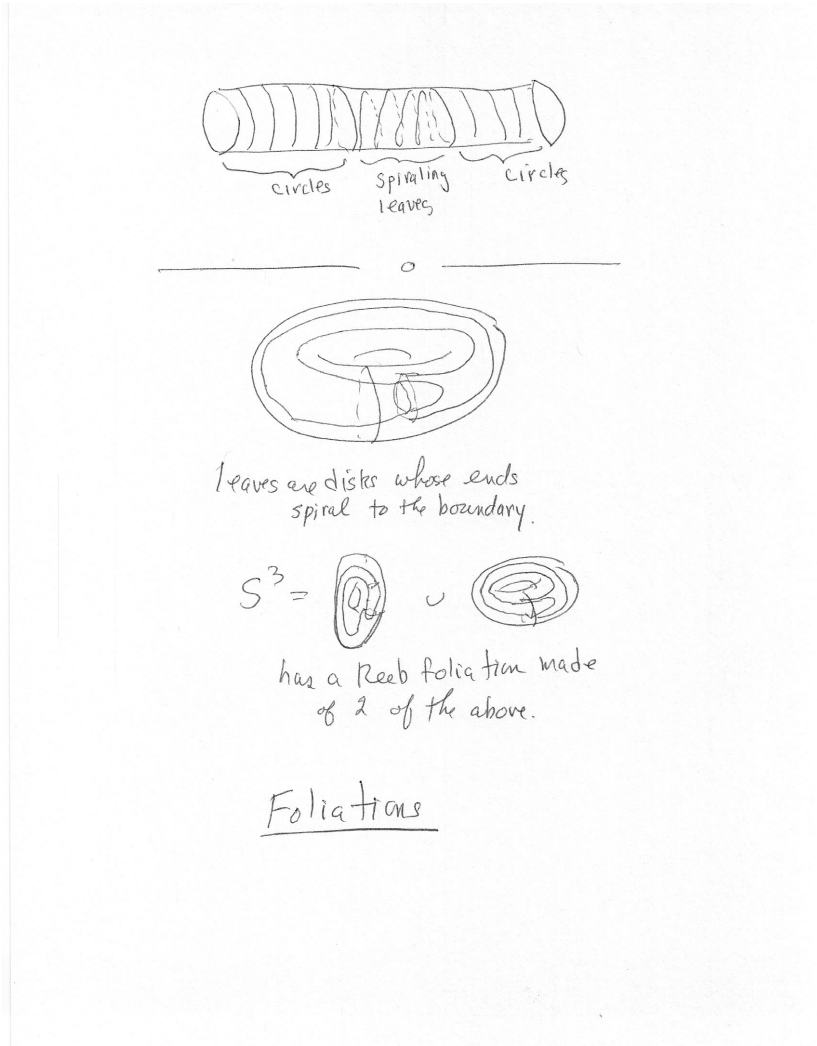 circles
spiraling
leaves
circles
o
leaves are disks whose ends
spiral to the boundary.
S³ = ∪
has a Reeb foliation made
of 2 of the above.
Foliations